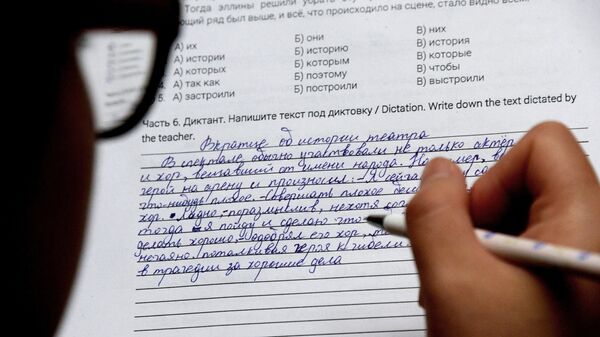 Тогда эллины решили убрать
ряд был выше, и всё, что происходило на сцене, стало видно всем.
А) их Б) они В) них
А) истории Б) историю В) история
А) которых Б) которым В) которые
4. А) так как Б) поэтому В) чтобы
5. А) застроили Б) построили В) выстроили
Часть 6. Диктант. Напишите текст под диктовку / Dictation. Write down the text dictated by
the teacher.
Вкратце об истории театра
В спектакле обычно участвовали не только актёр
и хор, вещавший от имени народа. Например,
герой на арену и произносил: - Я сейчас
что-нибудь плохое. - Совершать плохое
хор. - Ладно, - поразмыслив, нехотя
тогда я пойду и сделаю что
делать хорошо, - одобрял его хор,
нечаяно поталкивая героя к гибели
в трагедии за хорошие дела